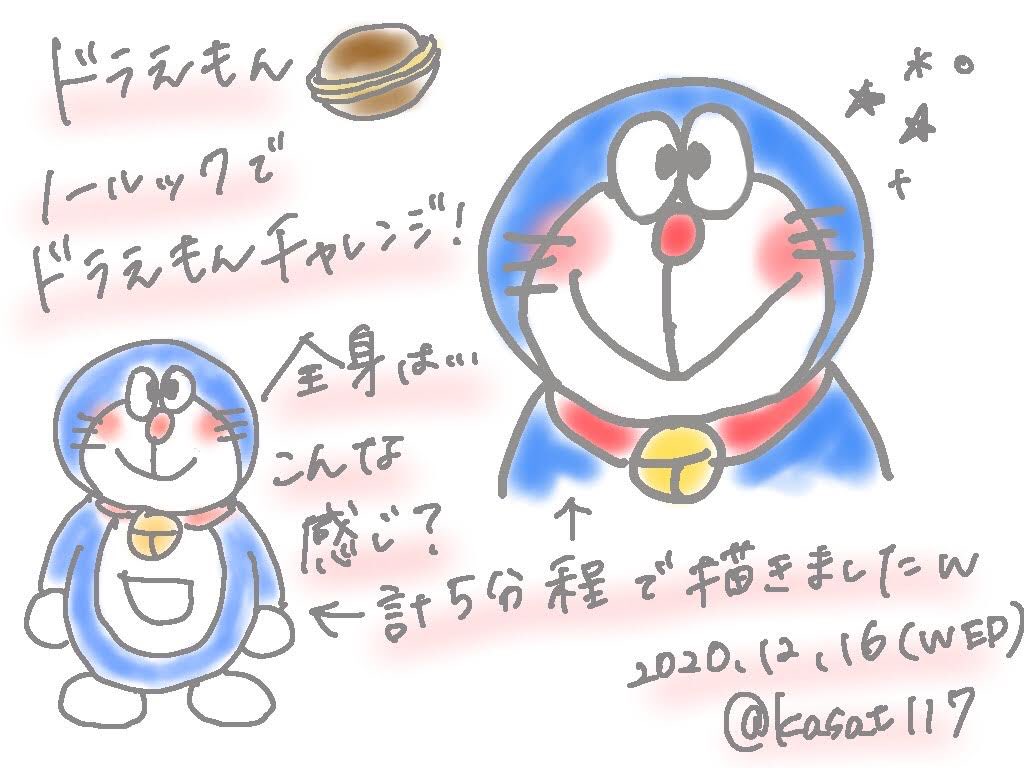 ドラえもん
ノールックで
ドラえもんチャレンジ!
全身は…
こんな
感じ?
↑
←計5分程で描きましたw
2020.12.16(WED)
@kasat117